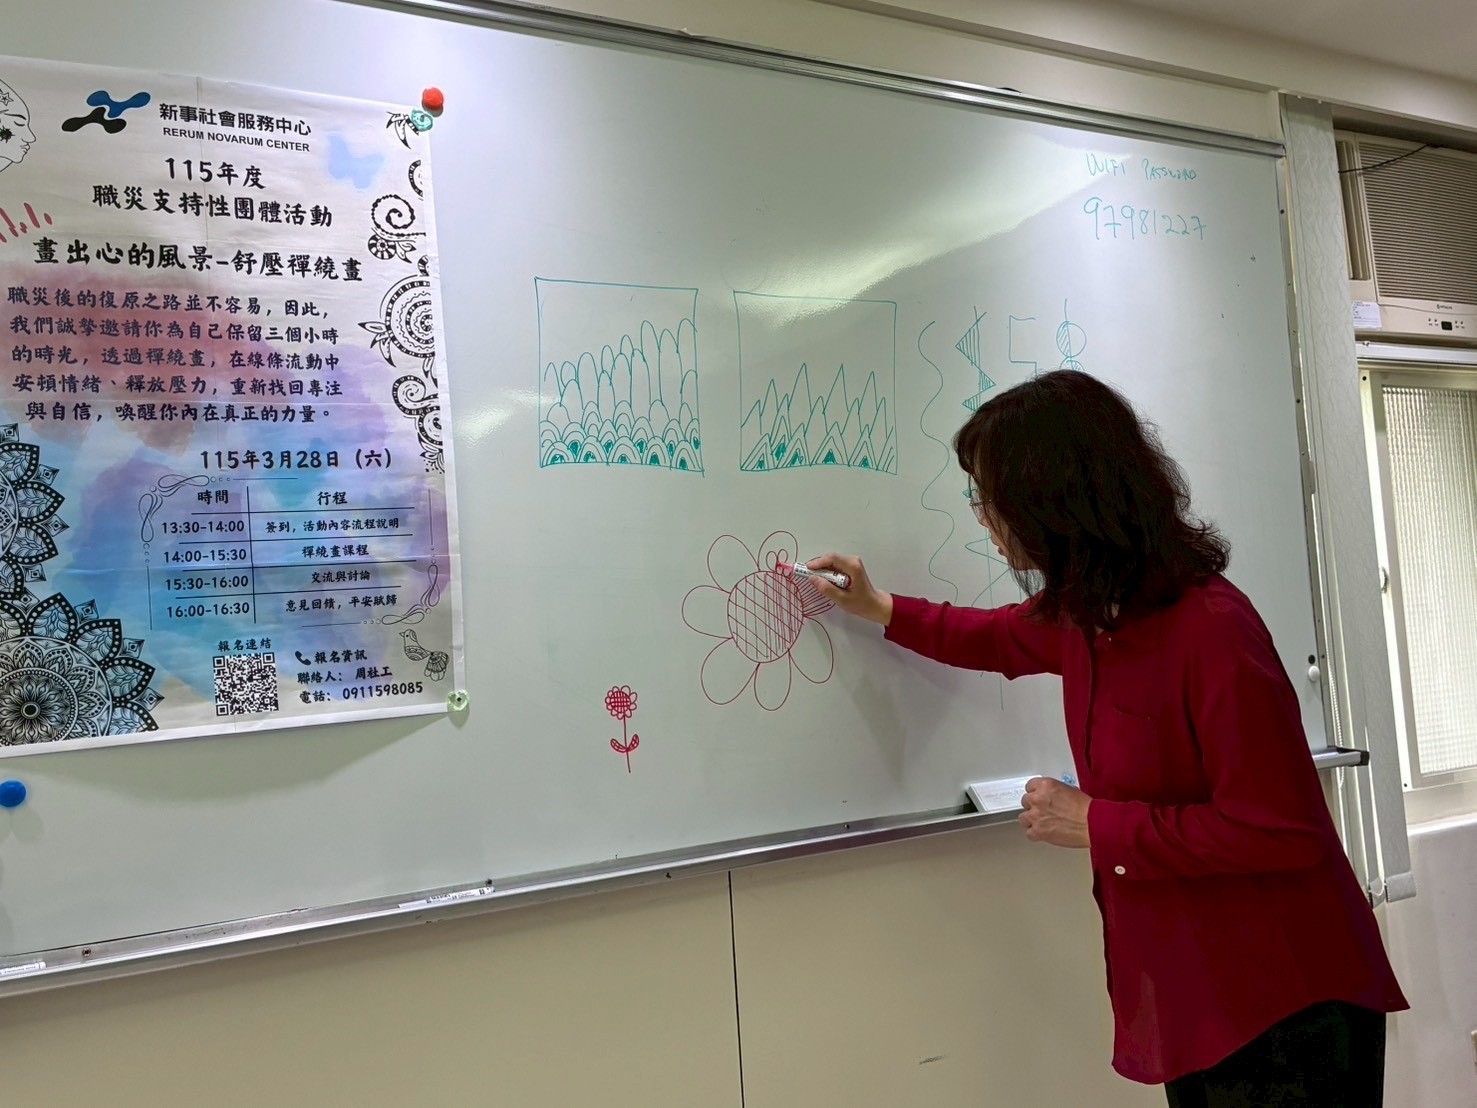 新事社會服務中心
RERUM NOVARUM CENTER
115年度
職災支持性團體活動
畫出心的風景-舒壓禪繞畫
職災後的復原之路並不容易，因此，
我們誠摯邀請你為自己保留三個小時
的時光，透過禪繞畫，在線條流動中
安頓情緒、釋放壓力，重新找回專注
與自信，喚醒你內在真正的力量。
115年3月28日（六）
時間 行程
13:30-14:00 簽到，活動內容流程說明
14:00-15:30 禪繞畫課程
15:30-16:00 交流與討論
16:00-16:30 意見回饋，平安賦歸
報名連結
報名資訊
聯絡人： 周社工
電話： 0911598085
WIFI PASSWORD
97981227